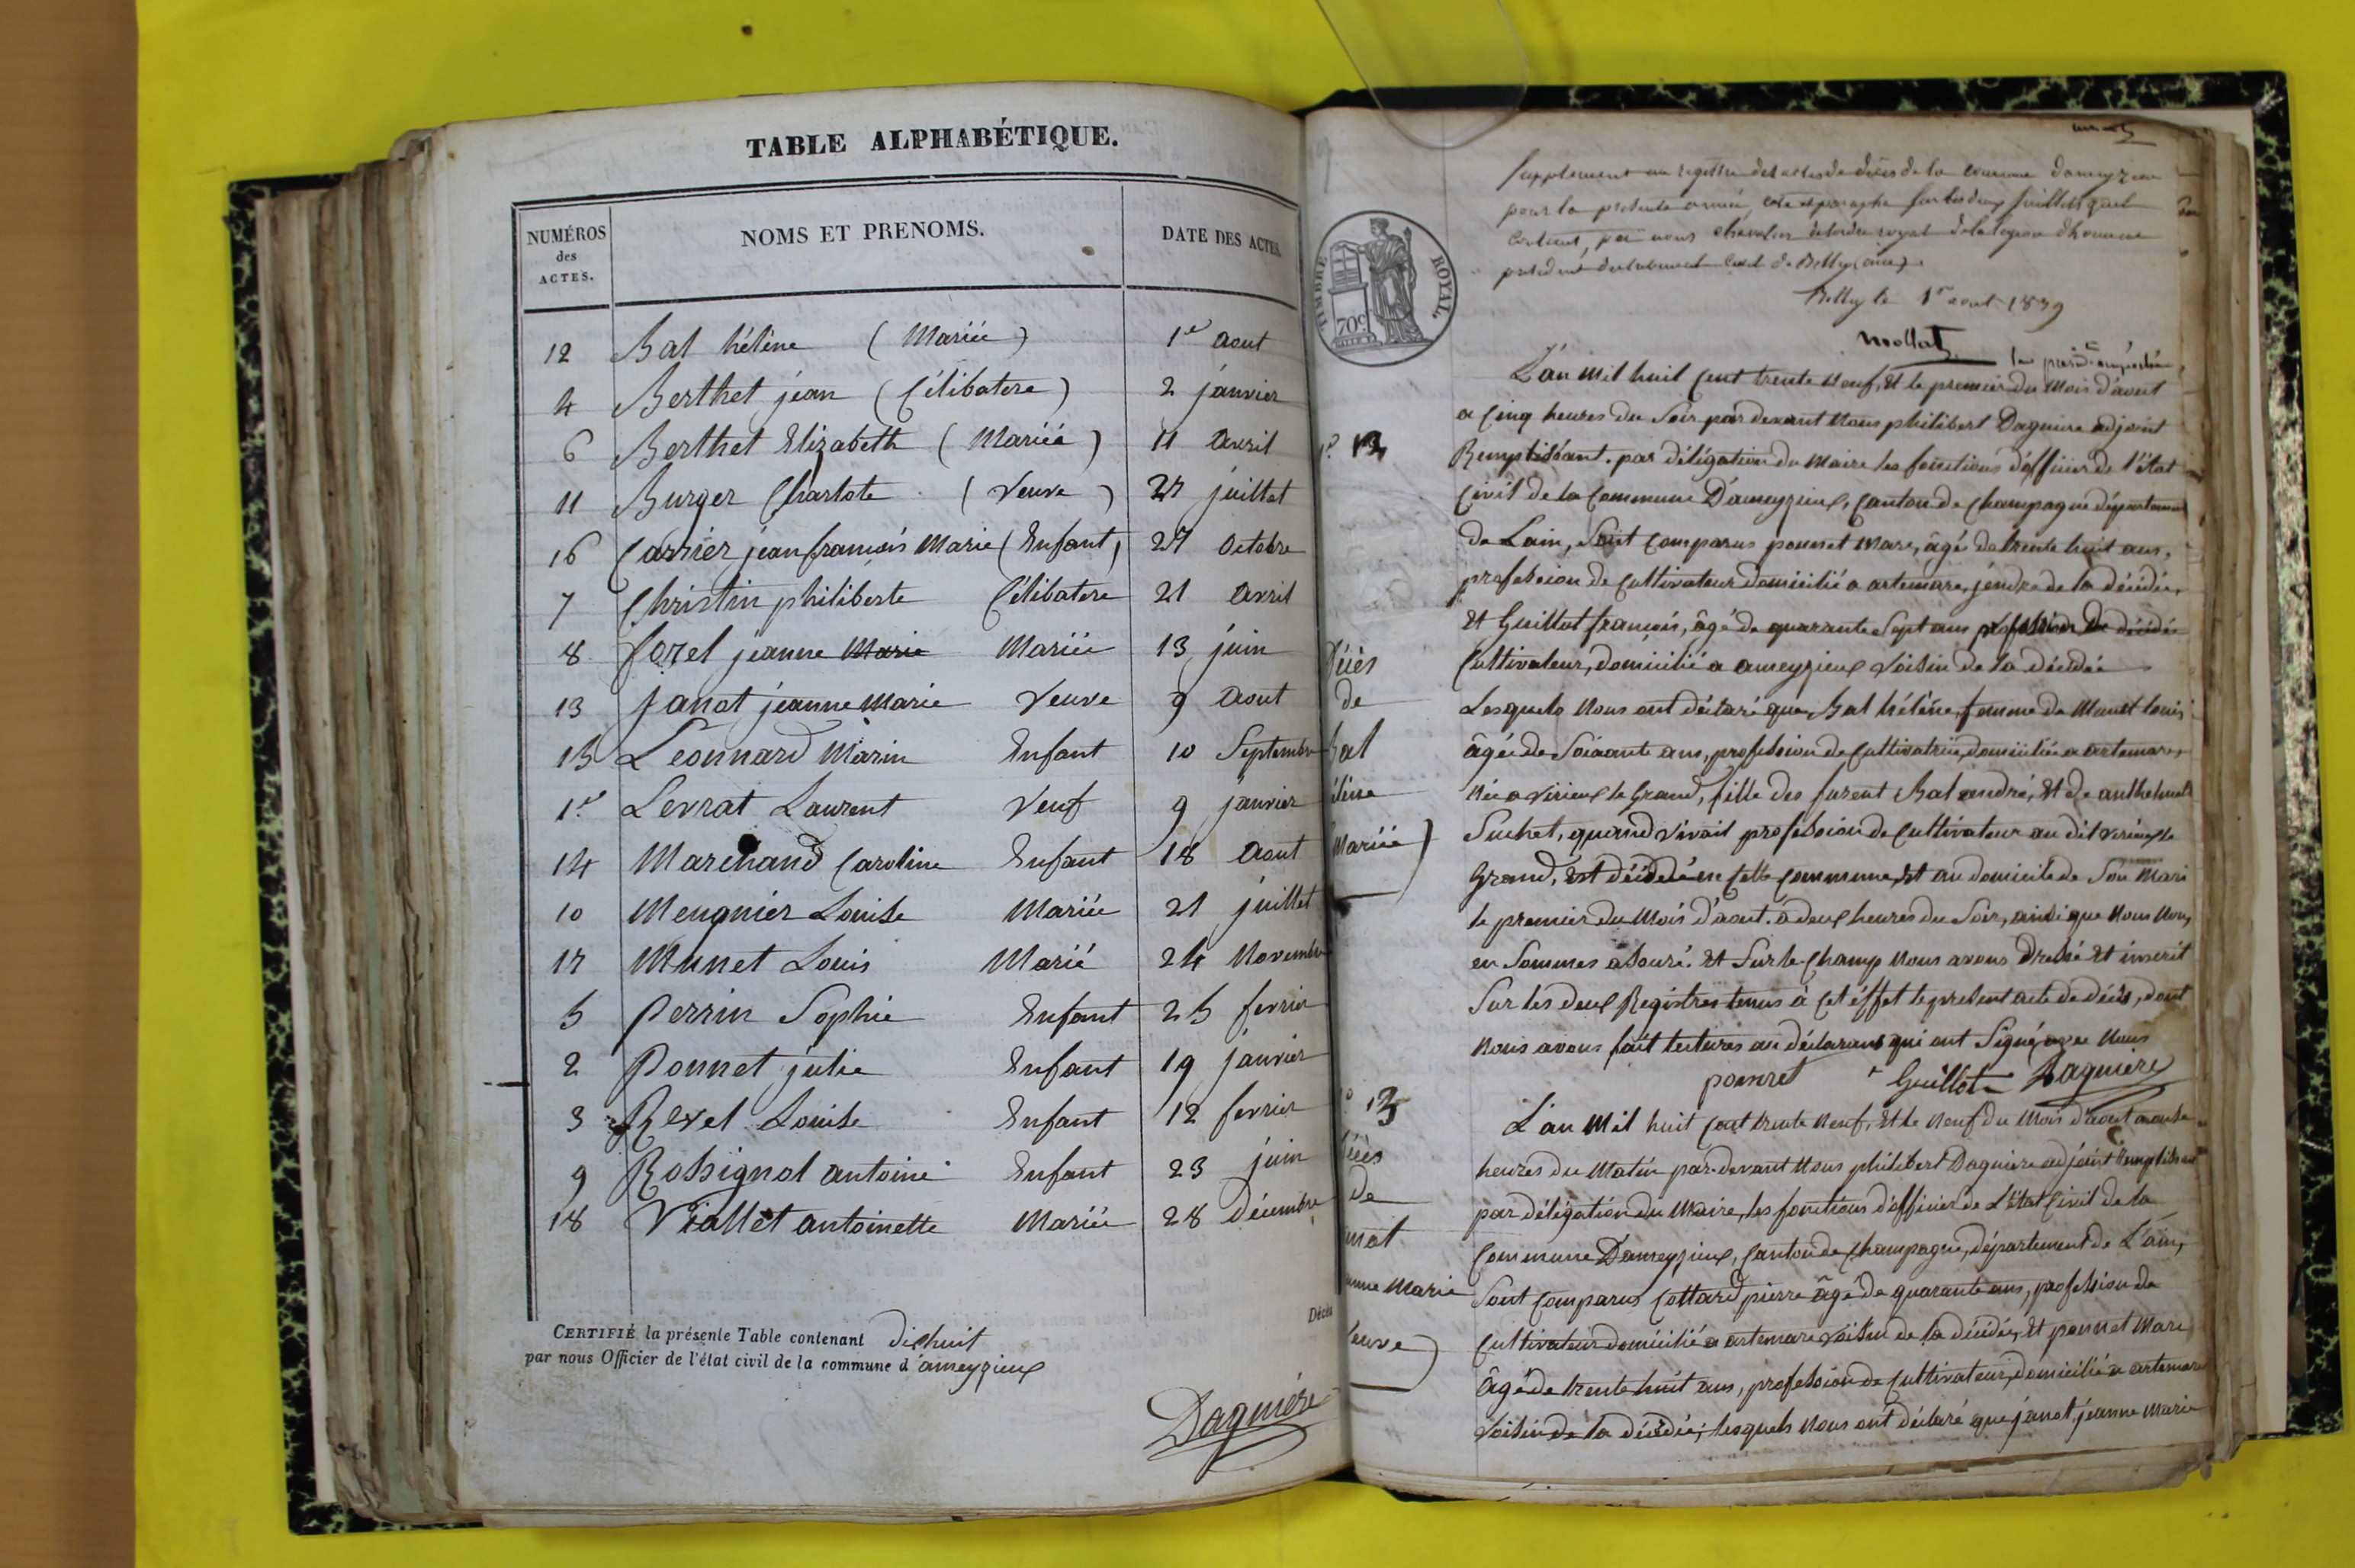 TABLE ALPHABÉTIQUE.
NUMÉROS des ACTES.
NOMS ET PRENOMS.
DATE DES ACTES.
12 Bal hélène (Mariée) 1er aout
4 Berthet jean (Célibatere) 2 janvier
6 Berthet Elizabeth (Mariée) 11 avril
11 Burger Charlote (Veuve) 27 juillet
16 Carrier jean françois Marie (Enfant) 27 Octobre
7 Christin philiberte Célibatere 21 avril
8 forel jeanne Marie Mariée 13 juin
13 janot jeanne Marie Veuve 9 aout
15 Leonnard Marin Enfant 10 Septembre
1er Levrat Laurent Veuf 9 janvier
14 Marchand Caroline Enfant 18 aout
10 Meugnier Louise Mariée 21 juillet
17 Munet Louis Marié 24 Novembre
5 Perrin Sophie Enfant 25 fevrier
2 Ponnet julie Enfant 19 janvier
3 Revel Louise Enfant 12 fevrier
9 Rossignol antoine Enfant 23 juin
18 Viallet antoinette Mariée 28 décembre
CERTIFIÉ la présente Table contenant dixhuit
par nous Officier de l'état civil de la commune d'ameyzieux
Daguière
TIMBRE ROYAL.
70c
Supplement au registre des actes de décès de la commune dameyzieu
pour la présente année, coté et paraphé sur les deux feuillets quil
contient, par nous chevalier de lordre royal de la légion dhonneur
président du tribunal civil de Belley (ain)
Belley le 1er aout 1839
Mollat
L'an mil huit cent trente neuf, et le premier du mois d'aout
a cinq heures du Soir par devant Nous philibert Daguiere adjoint
Remplissant par délégation du Maire les fonctions d'officier de l'état
Civil de la Commune D'ameyzieux, Canton de Champagne département
de Lain, Sont Comparus ponnet Marc, âgé de trente huit ans,
profession de Cultivateur domicilié a artemare, jendre de la décédée,
et Guillot françois, âgé de quarante Sept ans profession de décédée
Cultivateur, domicilié a ameyzieux Voisin de la décédée
Lesquels Nous ont déclaré que Bal hélène, femme de Munet louis
âgée de Soixante ans, profession de Cultivatrice, domiciliée a artemare,
Née a Virieux le Grand, fille des furent Bal andré, et de anthelmette
Suchet, quand vivait profession de Cultivateur au dit Virieux le
Grand, est décédée en cette Commune, et au domicile de Son Mari
le premier du Mois d'aout à deux heures du Soir, ainsi que Nous Nous
en Sommes assuré. et Sur le Champ Nous avons Dressé et inscrit
Sur les deux Registres tenus à cet éffet le present acte de décès, dont
Nous avons fait lectures au déclarans qui ont Signé avec Nous
ponnet Guillot Daguière
13
L'an Mil huit cent trente Neuf, et le Neuf du Mois d'aout a onze
heures du Matin par-devant Nous philibert Daguiere adjoint Remplissant
par délégation du Maire, les fonctions d'officier de L'état Civil de la
Commune Dameyzieux, Canton de Champagne, département de L'ain,
Sont Comparus Cottard pierre âgé de quarante ans, profession de
Cultivateur domicilié a artemare Voisin de la décédée, et ponnet Marc
âgé de trente huit ans, profession de Cultivateur, domicilié a artemare
Voisin de la décédée; lesquels Nous ont déclaré que janot jeanne Marie